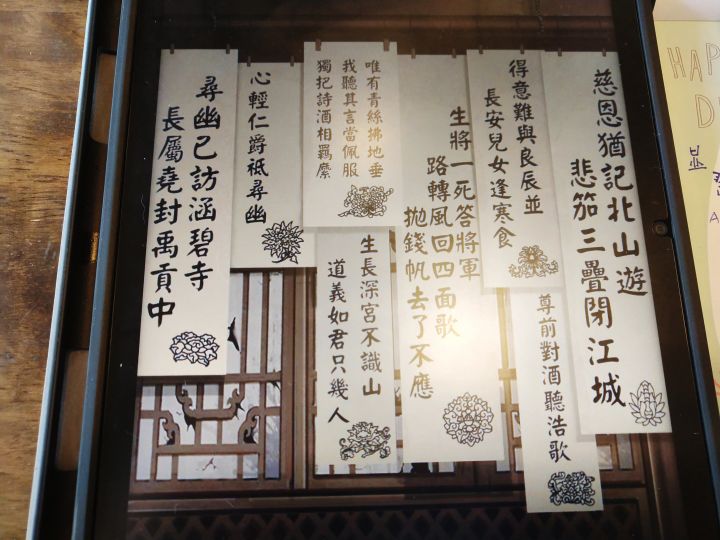 慈恩猶記北山遊
悲笳三疊閉江城
尊前對酒聽浩歌
得意難與良辰並
長安兒女逢寒食
生將一死答將軍
路轉風回四面歌
拋錢帆去了不應
唯有青絲拂地垂
我聽其言當佩服
獨把詩酒相羈縻
生長深宮不識山
道義如君只幾人
心輕仁爵祗尋幽
尋幽已訪涵碧寺
長屬堯封禹貢中
HAP
D